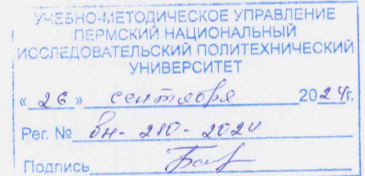 УЧЕБНО-МЕТОДИЧЕСКОЕ УПРАВЛЕНИЕ
ПЕРМСКИЙ НАЦИОНАЛЬНЫЙ
ИССЛЕДОВАТЕЛЬСКИЙ ПОЛИТЕХНИЧЕСКИЙ
УНИВЕРСИТЕТ
«26» сентября 2024г.
Рег. № вн-210-2024
Подпись